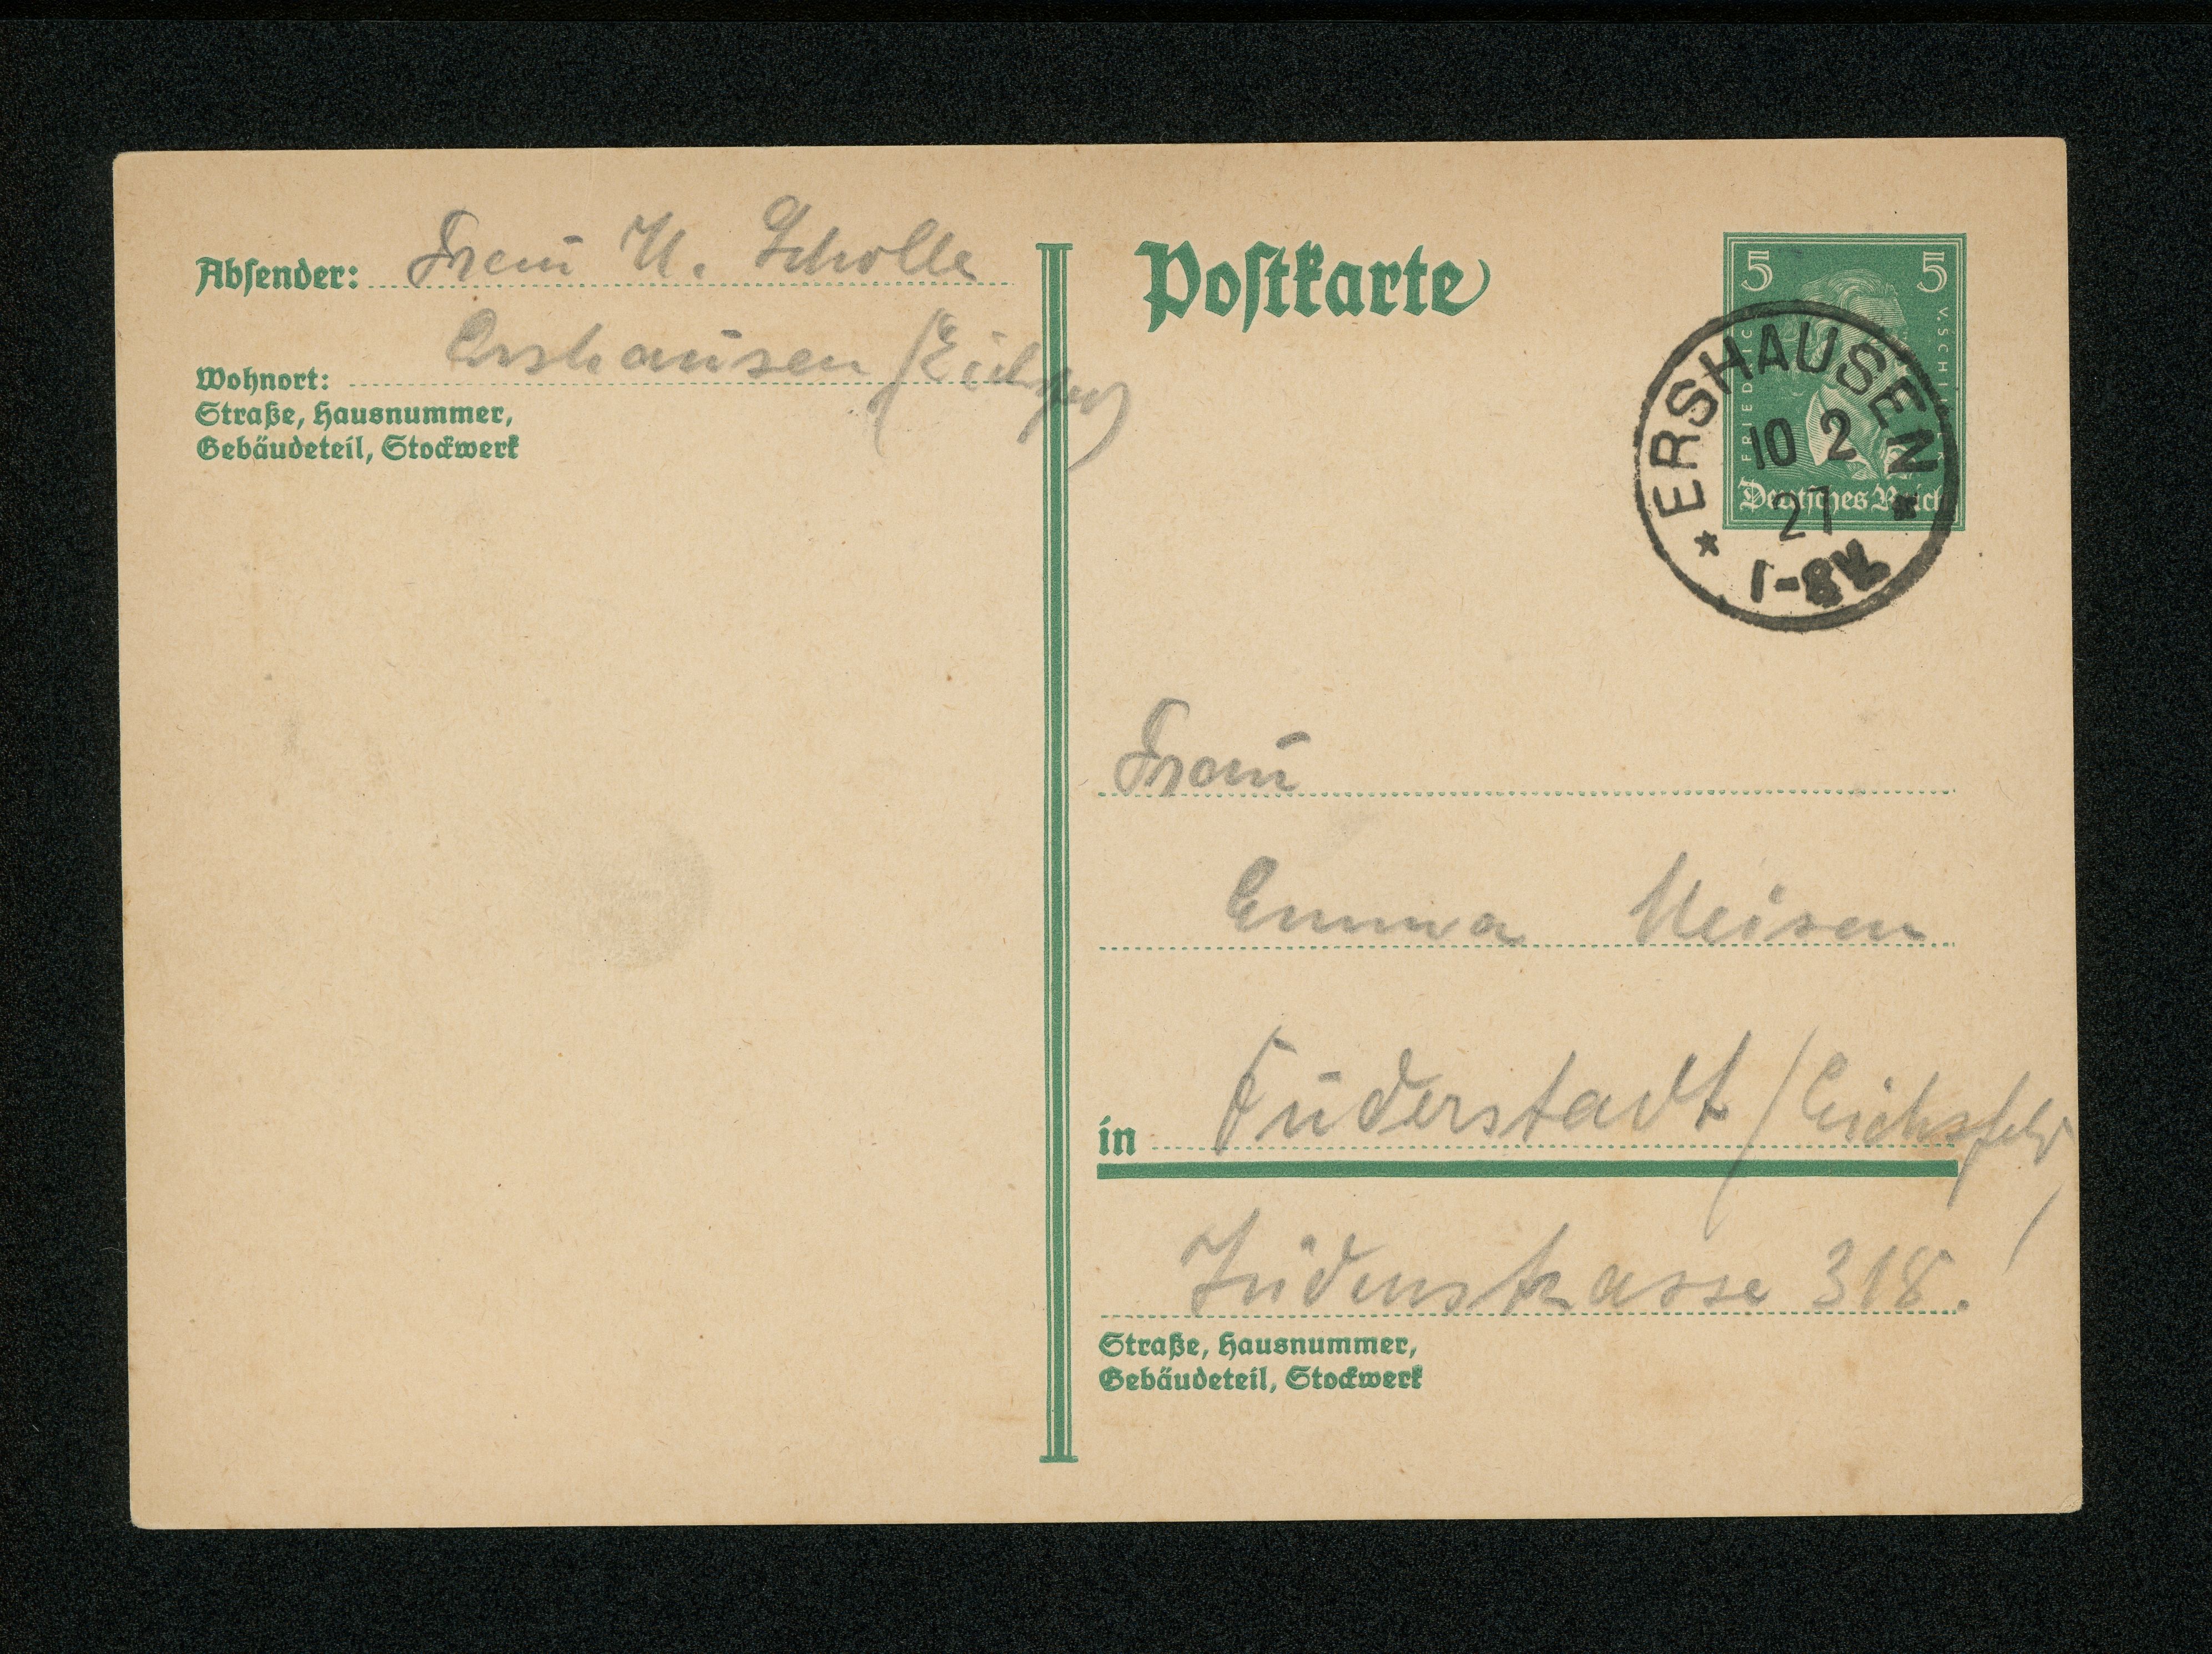 Absender: Frau M. Scholle
Ershausen (Eichsf.)
Wohnort:
Straße, Hausnummer,
Gebäudeteil, Stockwerk
Postkarte
5 5
FRIEDRICH V. SCHILLER
Deutsches Reich
ERSHAUSEN
10 2
27
Frau
Emma Meisen
in Duderstadt (Eichsfeld)
Jüdenstrasse 318.
Straße, Hausnummer,
Gebäudeteil, Stockwerk